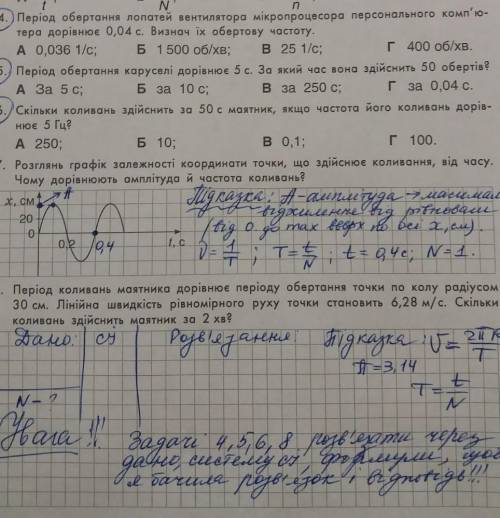 t N n
4. Період обертання лопатей вентилятора мікропроцесора персонального комп'ю-
тера дорівнює 0,04 с. Визнач їх обертову частоту.
А 0,036 1/с; Б 1500 об/хв; В 25 1/с; Г 400 об/хв.
5. Період обертання каруселі дорівнює 5 с. За який час вона здійснить 50 обертів?
А За 5 с; Б за 10 с; В за 250 с; Г за 0,04 с.
6. Скільки коливань здійснить за 50 с маятник, якщо частота його коливань дорів-
нює 5 Гц?
А 250; Б 10; В 0,1; Г 100.
7. Розглянь графік залежності координати точки, що здійснює коливання, від часу.
Чому дорівнюють амплітуда й частота коливань?
x, см A
20
0
0,2 0,4 t, c
Підказка: А-амплітуда → максимал
відхилення від рівноваги
(від 0 до max вверх по осі x, см).
υ = 1/T ; T = t/N ; t = 0,4c; N = 1.
. Період коливань маятника дорівнює періоду обертання точки по колу радіусом
30 см. Лінійна швидкість рівномірного руху точки становить 6,28 м/с. Скільки
коливань здійснить маятник за 2 хв?
Дано: СІ Розв'язання: Підказка: υ = 2πR/T
π = 3,14
T = t/N
N - ?
Увага!!! Задачі 4, 5, 6, 8 розв'язати через
дано, систему СІ, формули, щоб
я бачила розв'язок і відповідь!!!